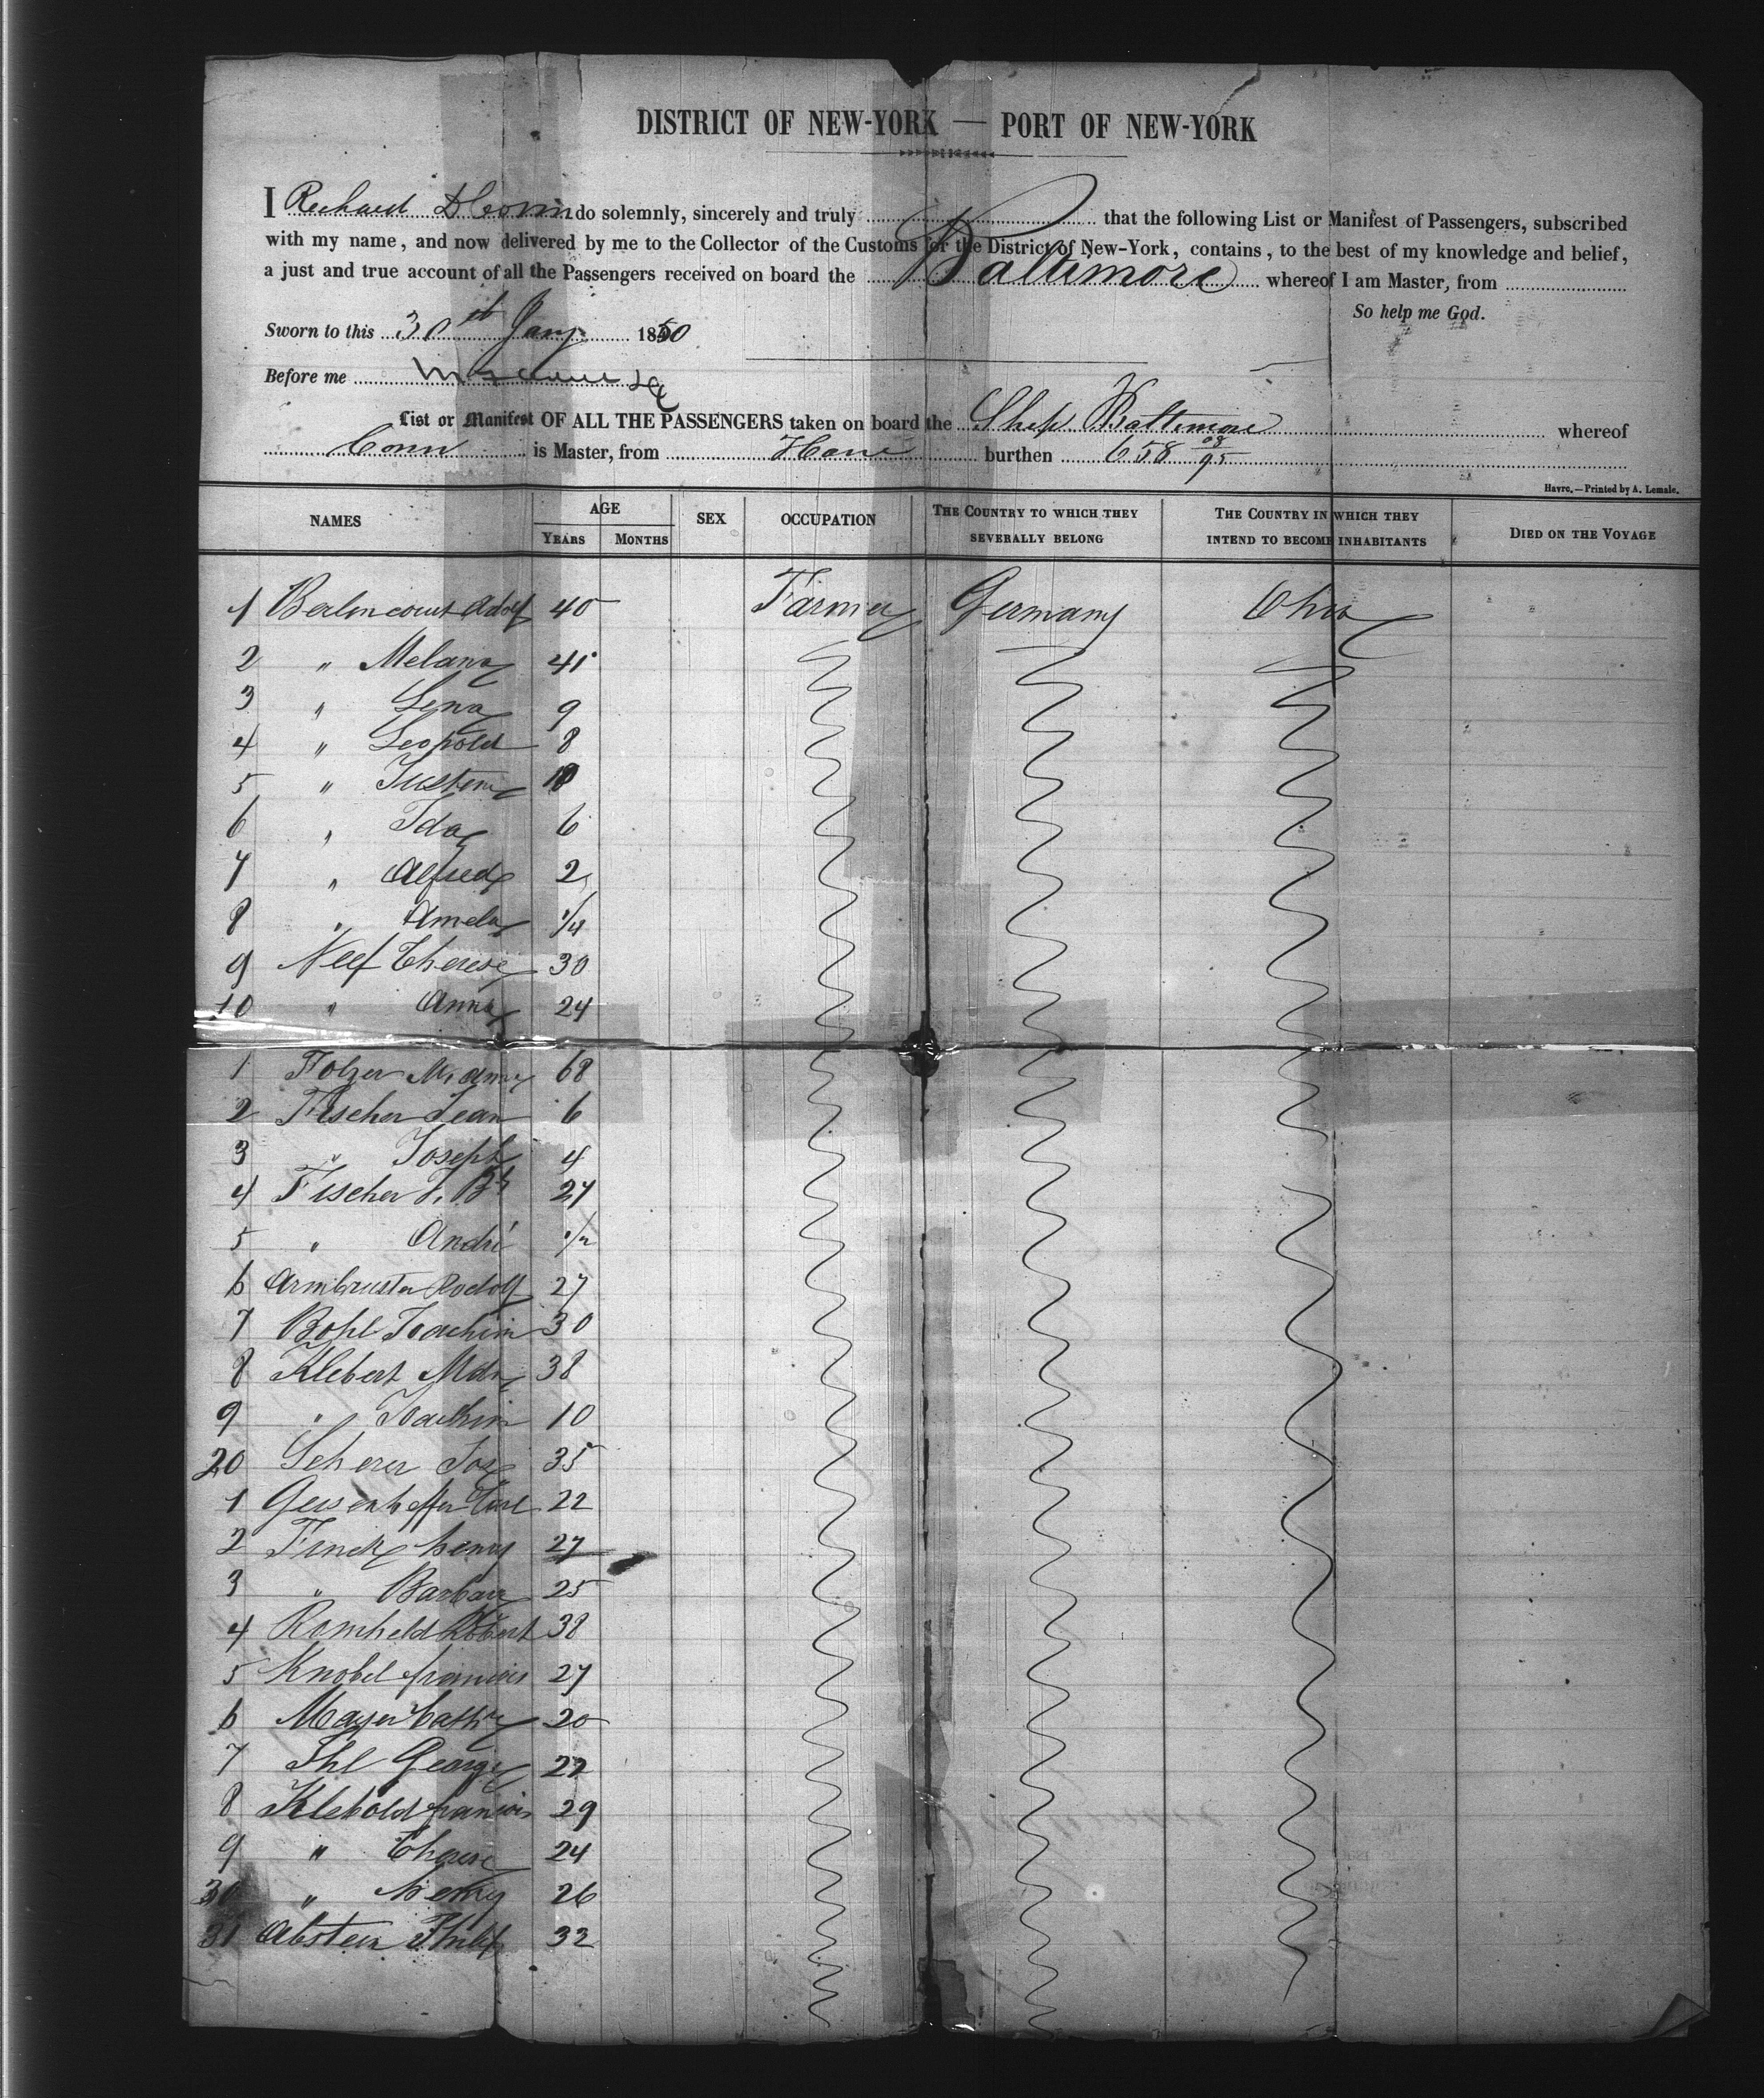 DISTRICT OF NEW-YORK — PORT OF NEW-YORK
I Richard D Conn do solemnly, sincerely and truly that the following List or Manifest of Passengers, subscribed
with my name, and now delivered by me to the Collector of the Customs for the District of New-York, contains, to the best of my knowledge and belief,
a just and true account of all the Passengers received on board the Baltimore whereof I am Master, from
So help me God.
Sworn to this 30th Jany 1850
Before me
List or Manifest OF ALL THE PASSENGERS taken on board the Ship Baltimore whereof
Conn is Master, from Havre burthen 658 08/95
Havre.—Printed by A. Lemale.
NAMES AGE SEX OCCUPATION THE COUNTRY TO WHICH THEY SEVERALLY BELONG THE COUNTRY IN WHICH THEY INTEND TO BECOME INHABITANTS DIED ON THE VOYAGE
YEARS MONTHS
1 Berlincourt Adolf 40 Farmer Germany Ohio
2 " Melana 45
3 " Lena 9
4 " Leopold 8
5 " Justine 10
6 " Ida 6
7 " Alfred 2
8 " Amela 1/4
9 Neef Therese 30
10 " Anna 24
1 Folzer 68
2 Fischer Jean 6
3 " Joseph 4
4 Fischer J. Bt 27
5 " André 1/2
6 Armbruster Rodolf 27
7 Bohl Joachim 30
8 Klebert 38
9 " Joachim 10
20 Scherer Jos 35
1 22
2 Finck henry 27
3 " Barbara 25
4 Romheld Robert 38
5 Knobel francois 27
6 Mayer Cathe 20
7 Ihl George 22
8 Klebold francois 29
9 " Therese 24
30 " henry 26
31 Abstein Philip 32